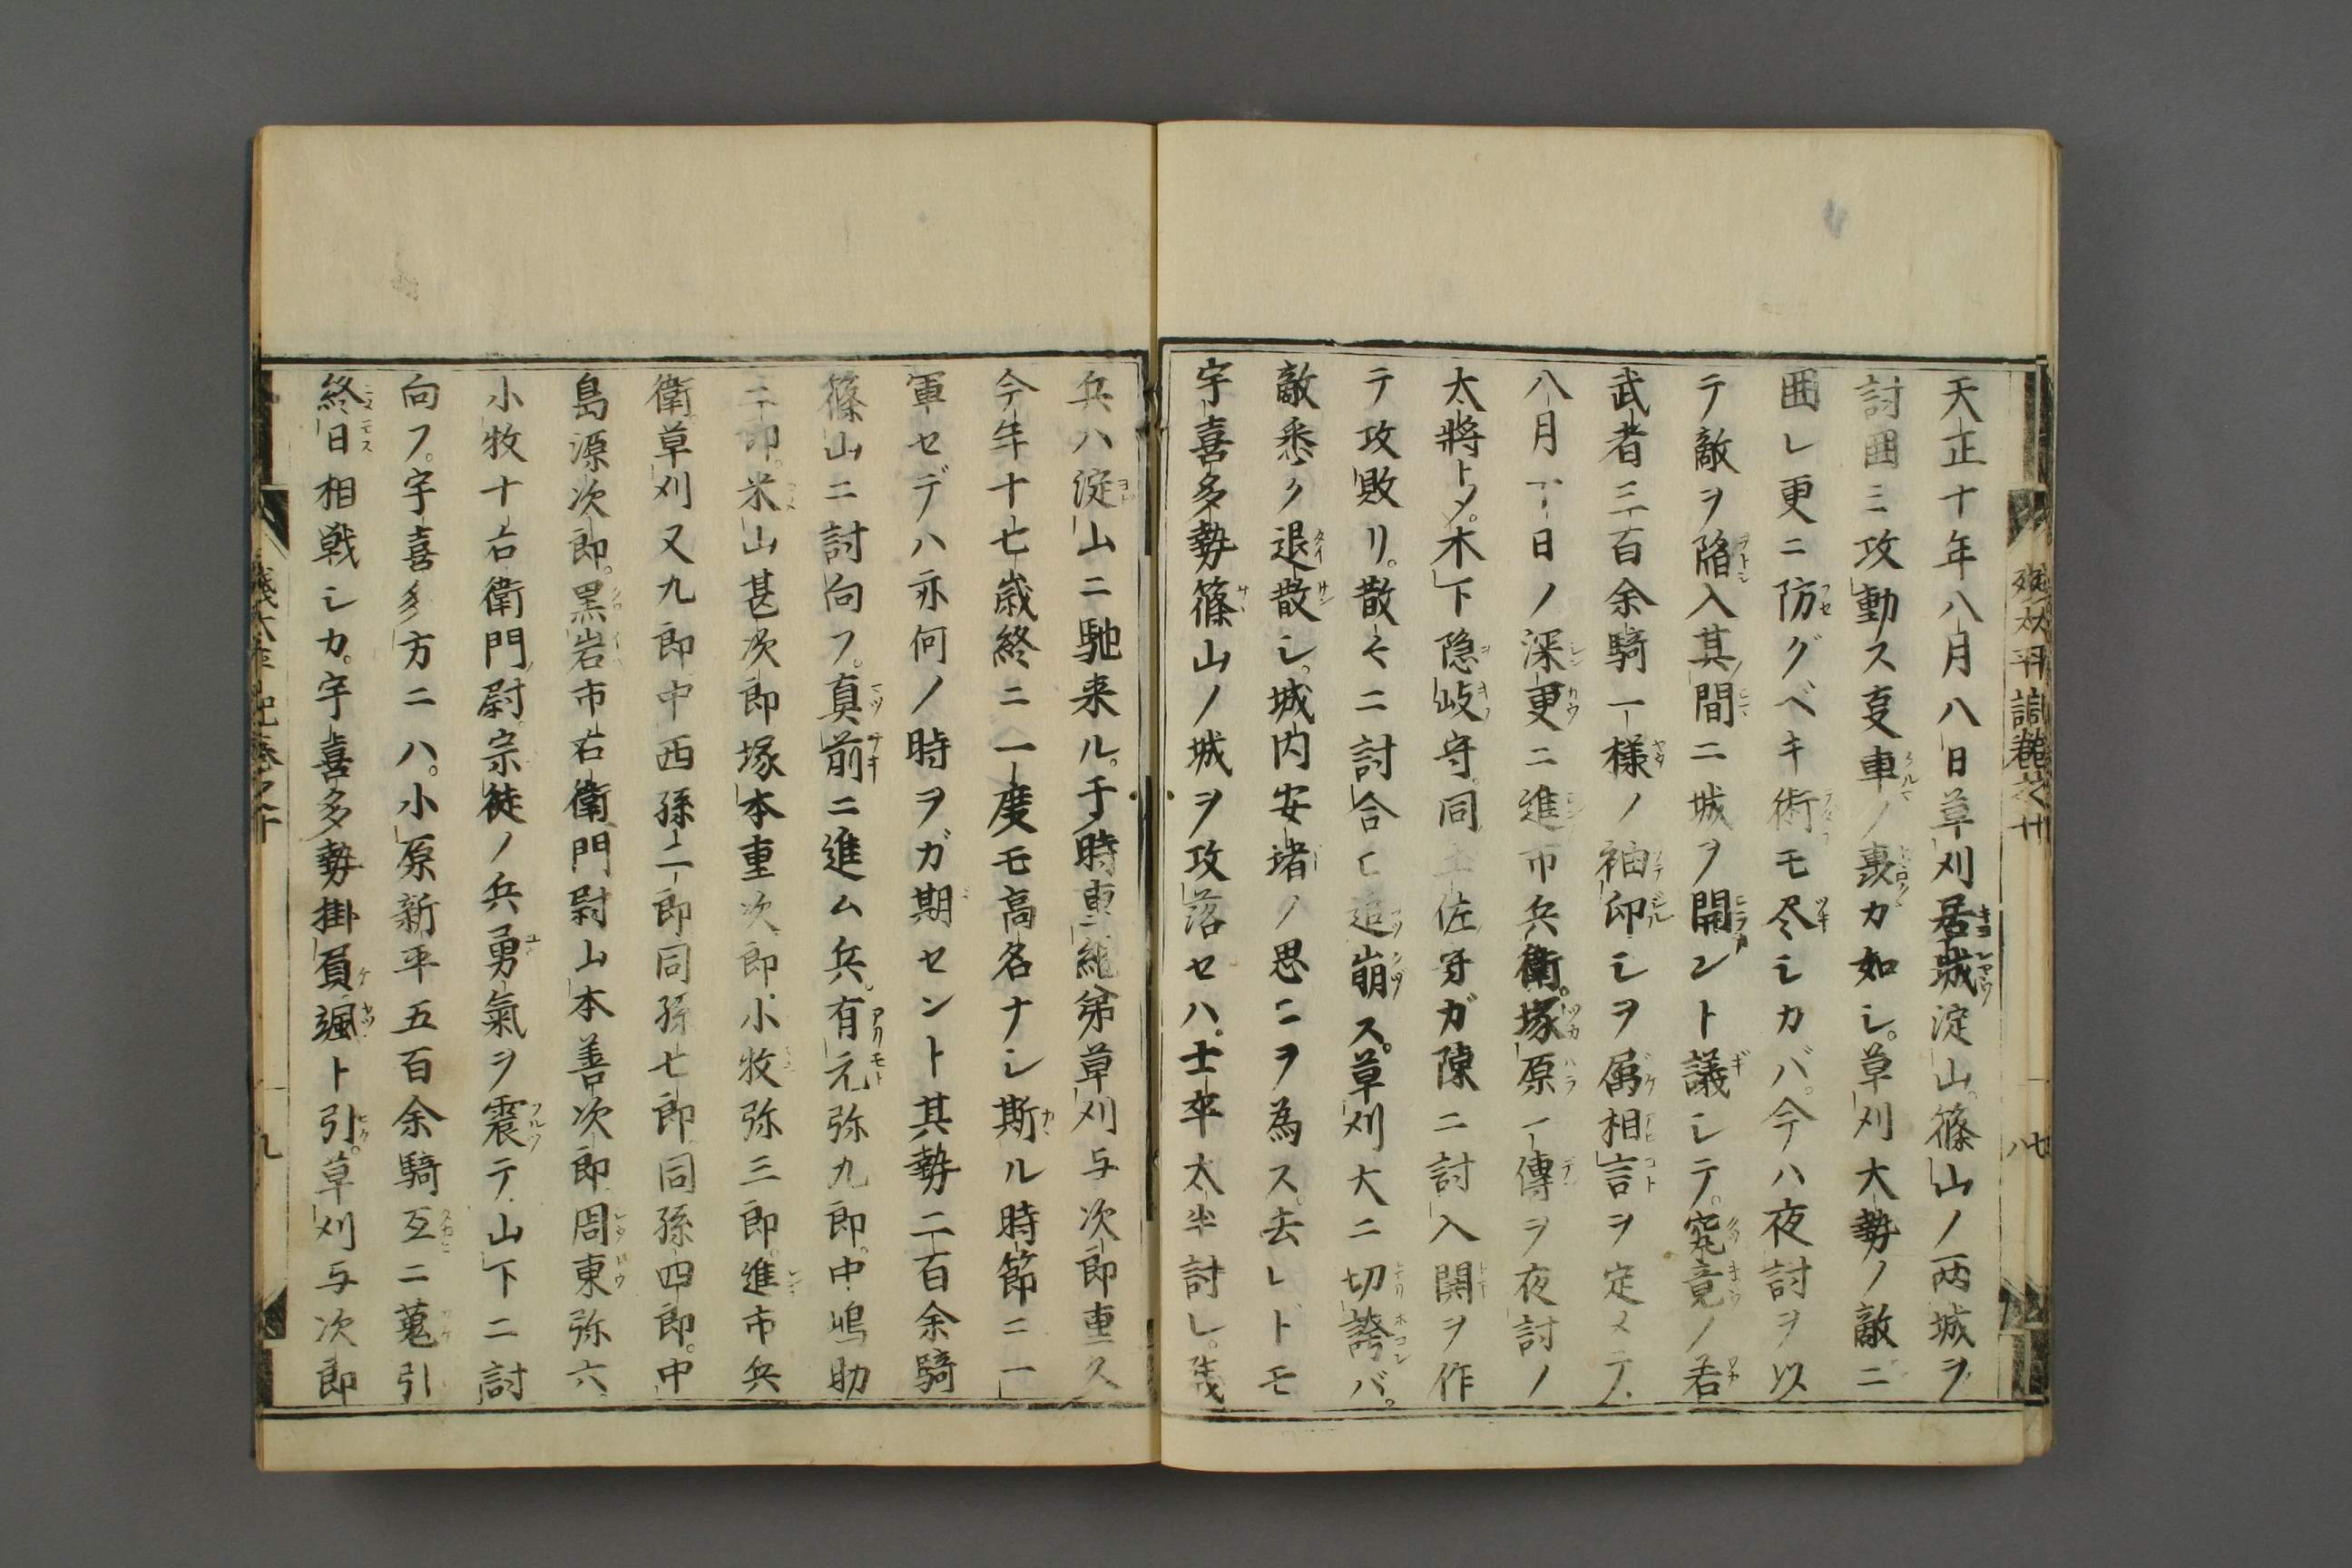 天正十年八月八日草刈居城淀山篠山ノ両城ヲ
討囲ミ攻動ス夏車ノ轟カ如シ。草刈大勢ノ敵ニ
囲レ更ニ防グベキ術モ尽シカバ。今ハ夜討ヲ以
テ敵ヲ陥入其間ニ城ヲ開ント議シテ。究竟ノ若
武者三百余騎一様ノ袖印シヲ属相言ヲ定メテ
八月 日ノ深更ニ進市兵衛。塚原一傳ヲ夜討ノ
太将トメ。木下隠岐守。同土佐守ガ陳ニ討入閧ヲ作
テ攻敗リ。散々ニ討合ヒ追崩ス。草刈大ニ切誇バ。
敵悉ク退散シ。城内安堵ノ思ニヲ為ス。去レドモ
宇喜多勢篠山ノ城ヲ攻落セハ。士卒太半討レ。残
兵ハ淀山ニ馳来ル。于時重継弟草刈与次郎重久
今年十七歳終ニ一度モ高名ナシ斯ル時節ニ一
軍セデハ亦何ノ時ヲガ期セント其勢二百余騎
篠山ニ討向フ。真前ニ進ム兵。有元弥九郎。中嶋助
三郎。米山甚次郎塚本重次郎小牧弥三郎。進市兵
衛草刈又九郎中西孫二郎同孫七郎同孫四郎。中
島源次郎。黒岩市右衛門尉山本善次郎周東弥六
小牧十右衛門尉。宗徒ノ兵勇氣ヲ震テ山下ニ討
向フ。宇喜多方ニハ。小原新平五百余騎互ニ蒐引
終日相戦シカ。宇喜多勢掛負颯ト引。草刈与次郎